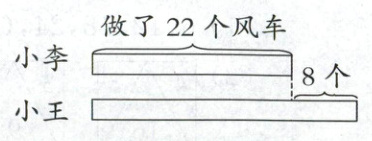 做了 22 个风车
小李
8 个
小王